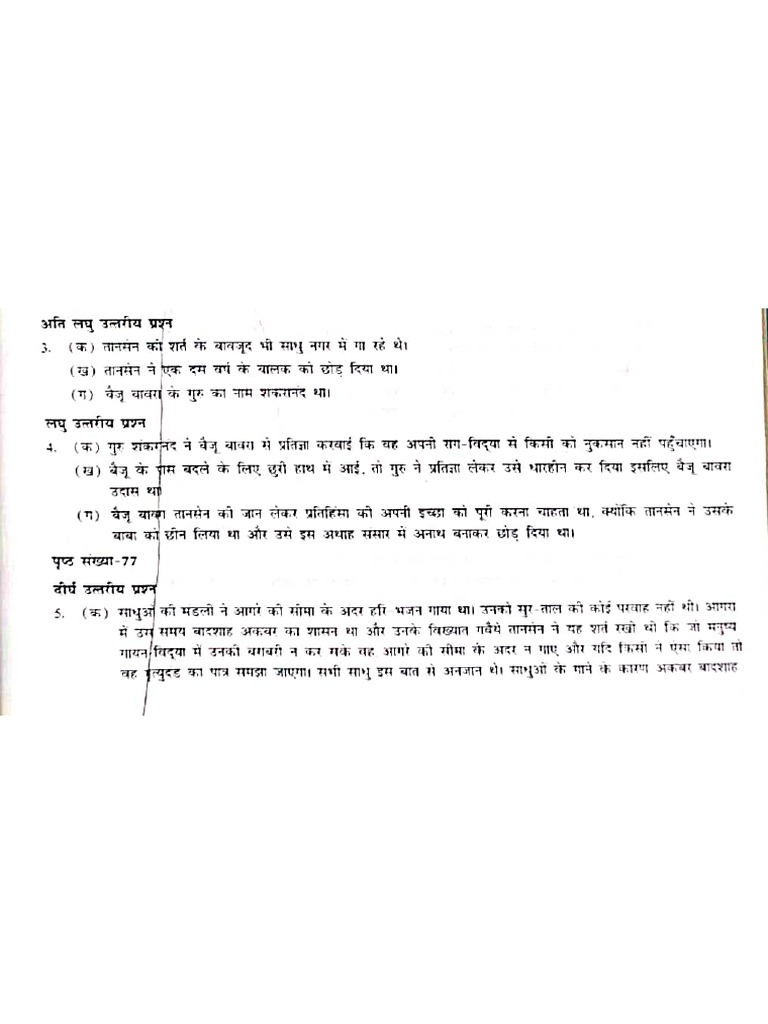 अति लघु उत्तरीय प्रश्न
3. (क) तानसेन की शर्त के बावजूद भी साधु नगर में गा रहे थे।
(ख) तानसेन ने एक दस वर्ष के बालक को छोड़ दिया था।
(ग) बैजू बावरा के गुरु का नाम शंकरानंद था।
लघु उत्तरीय प्रश्न
4. (क) गुरु शंकरानंद ने बैजू बावरा से प्रतिज्ञा करवाई कि वह अपनी राग-विद्या से किसी को नुकसान नहीं पहुँचाएगा।
(ख) बैजू के पास बदले के लिए छुरी हाथ में आई, तो गुरु ने प्रतिज्ञा लेकर उसे धारहीन कर दिया इसलिए बैजू बावरा
उदास था
(ग) बैजू बावरा तानसेन की जान लेकर प्रतिहिंसा की अपनी इच्छा को पूरी करना चाहता था, क्योंकि तानसेन ने उसके
बाबा को छीन लिया था और उसे इस अथाह संसार में अनाथ बनाकर छोड़ दिया था।
पृष्ठ संख्या-77
दीर्घ उत्तरीय प्रश्न
5. (क) साधुओं की मंडली ने आगरे की सीमा के अंदर हरि-भजन गाया था। उनको सुर-ताल की कोई परवाह नहीं थी। आगरा
में उस समय बादशाह अकबर का शासन था और उनके विख्यात गवैये तानसेन ने यह शर्त रखी थी कि जो मनुष्य
गायन-विद्या में उनकी बराबरी न कर सके वह आगरे की सीमा के अंदर न गाए और यदि किसी ने ऐसा किया तो
वह मृत्युदंड का पात्र समझा जाएगा। सभी साधु इस बात से अनजान थे। साधुओं के गाने के कारण अकबर बादशाह